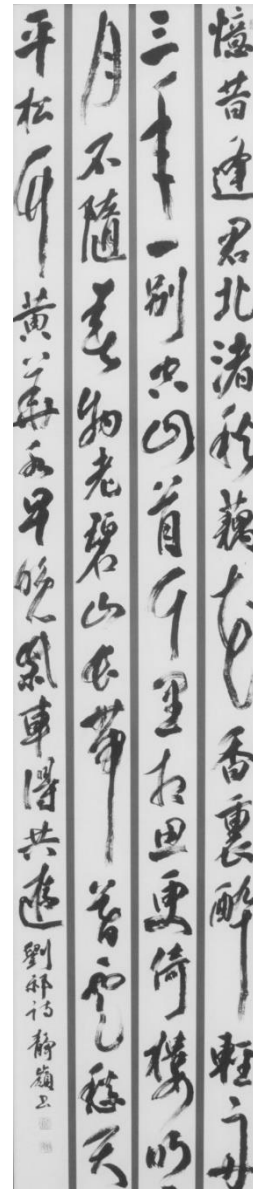 憶昔逢君北渚秋藕花香裏醉輕舟
三年一別空回首千里相思更倚樓明
月不隨春物老碧山長帶暮雲愁天
平松竹黃華水早晚柴車得共遊劉祁詩靜嶺書